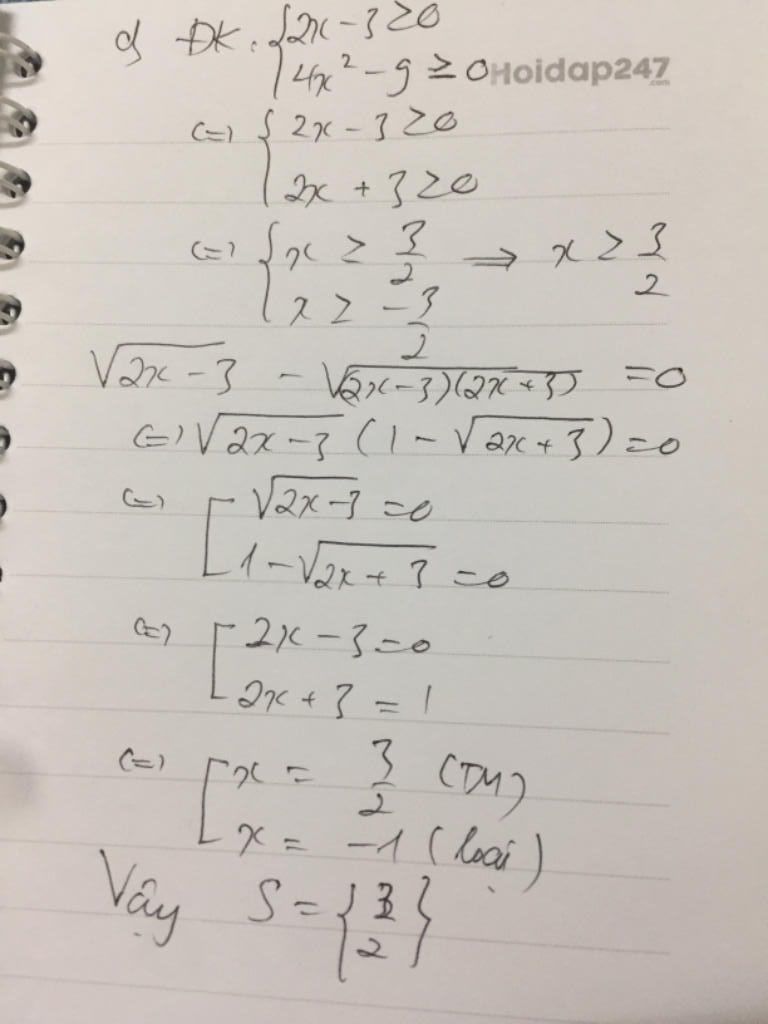 d) ĐK: { 2x - 3 ≥ 0
4x² - 9 ≥ 0 Hoidap247.com
(=) { 2x - 3 ≥ 0
2x + 3 ≥ 0
(=) { x ≥ 3/2 => x ≥ 3/2
x ≥ -3/2
√(2x-3) - √((2x-3)(2x+3)) = 0
(=) √(2x-3) (1 - √(2x+3)) = 0
(=) [ √(2x-3) = 0
1 - √(2x+3) = 0
(=) [ 2x - 3 = 0
2x + 3 = 1
(=) [ x = 3/2 (TM)
x = -1 (loại)
Vậy S = {3/2}